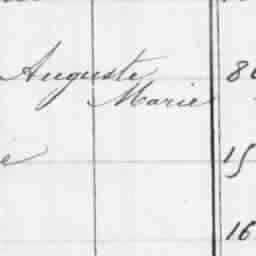 Auguste 86
Marie
e 15
16